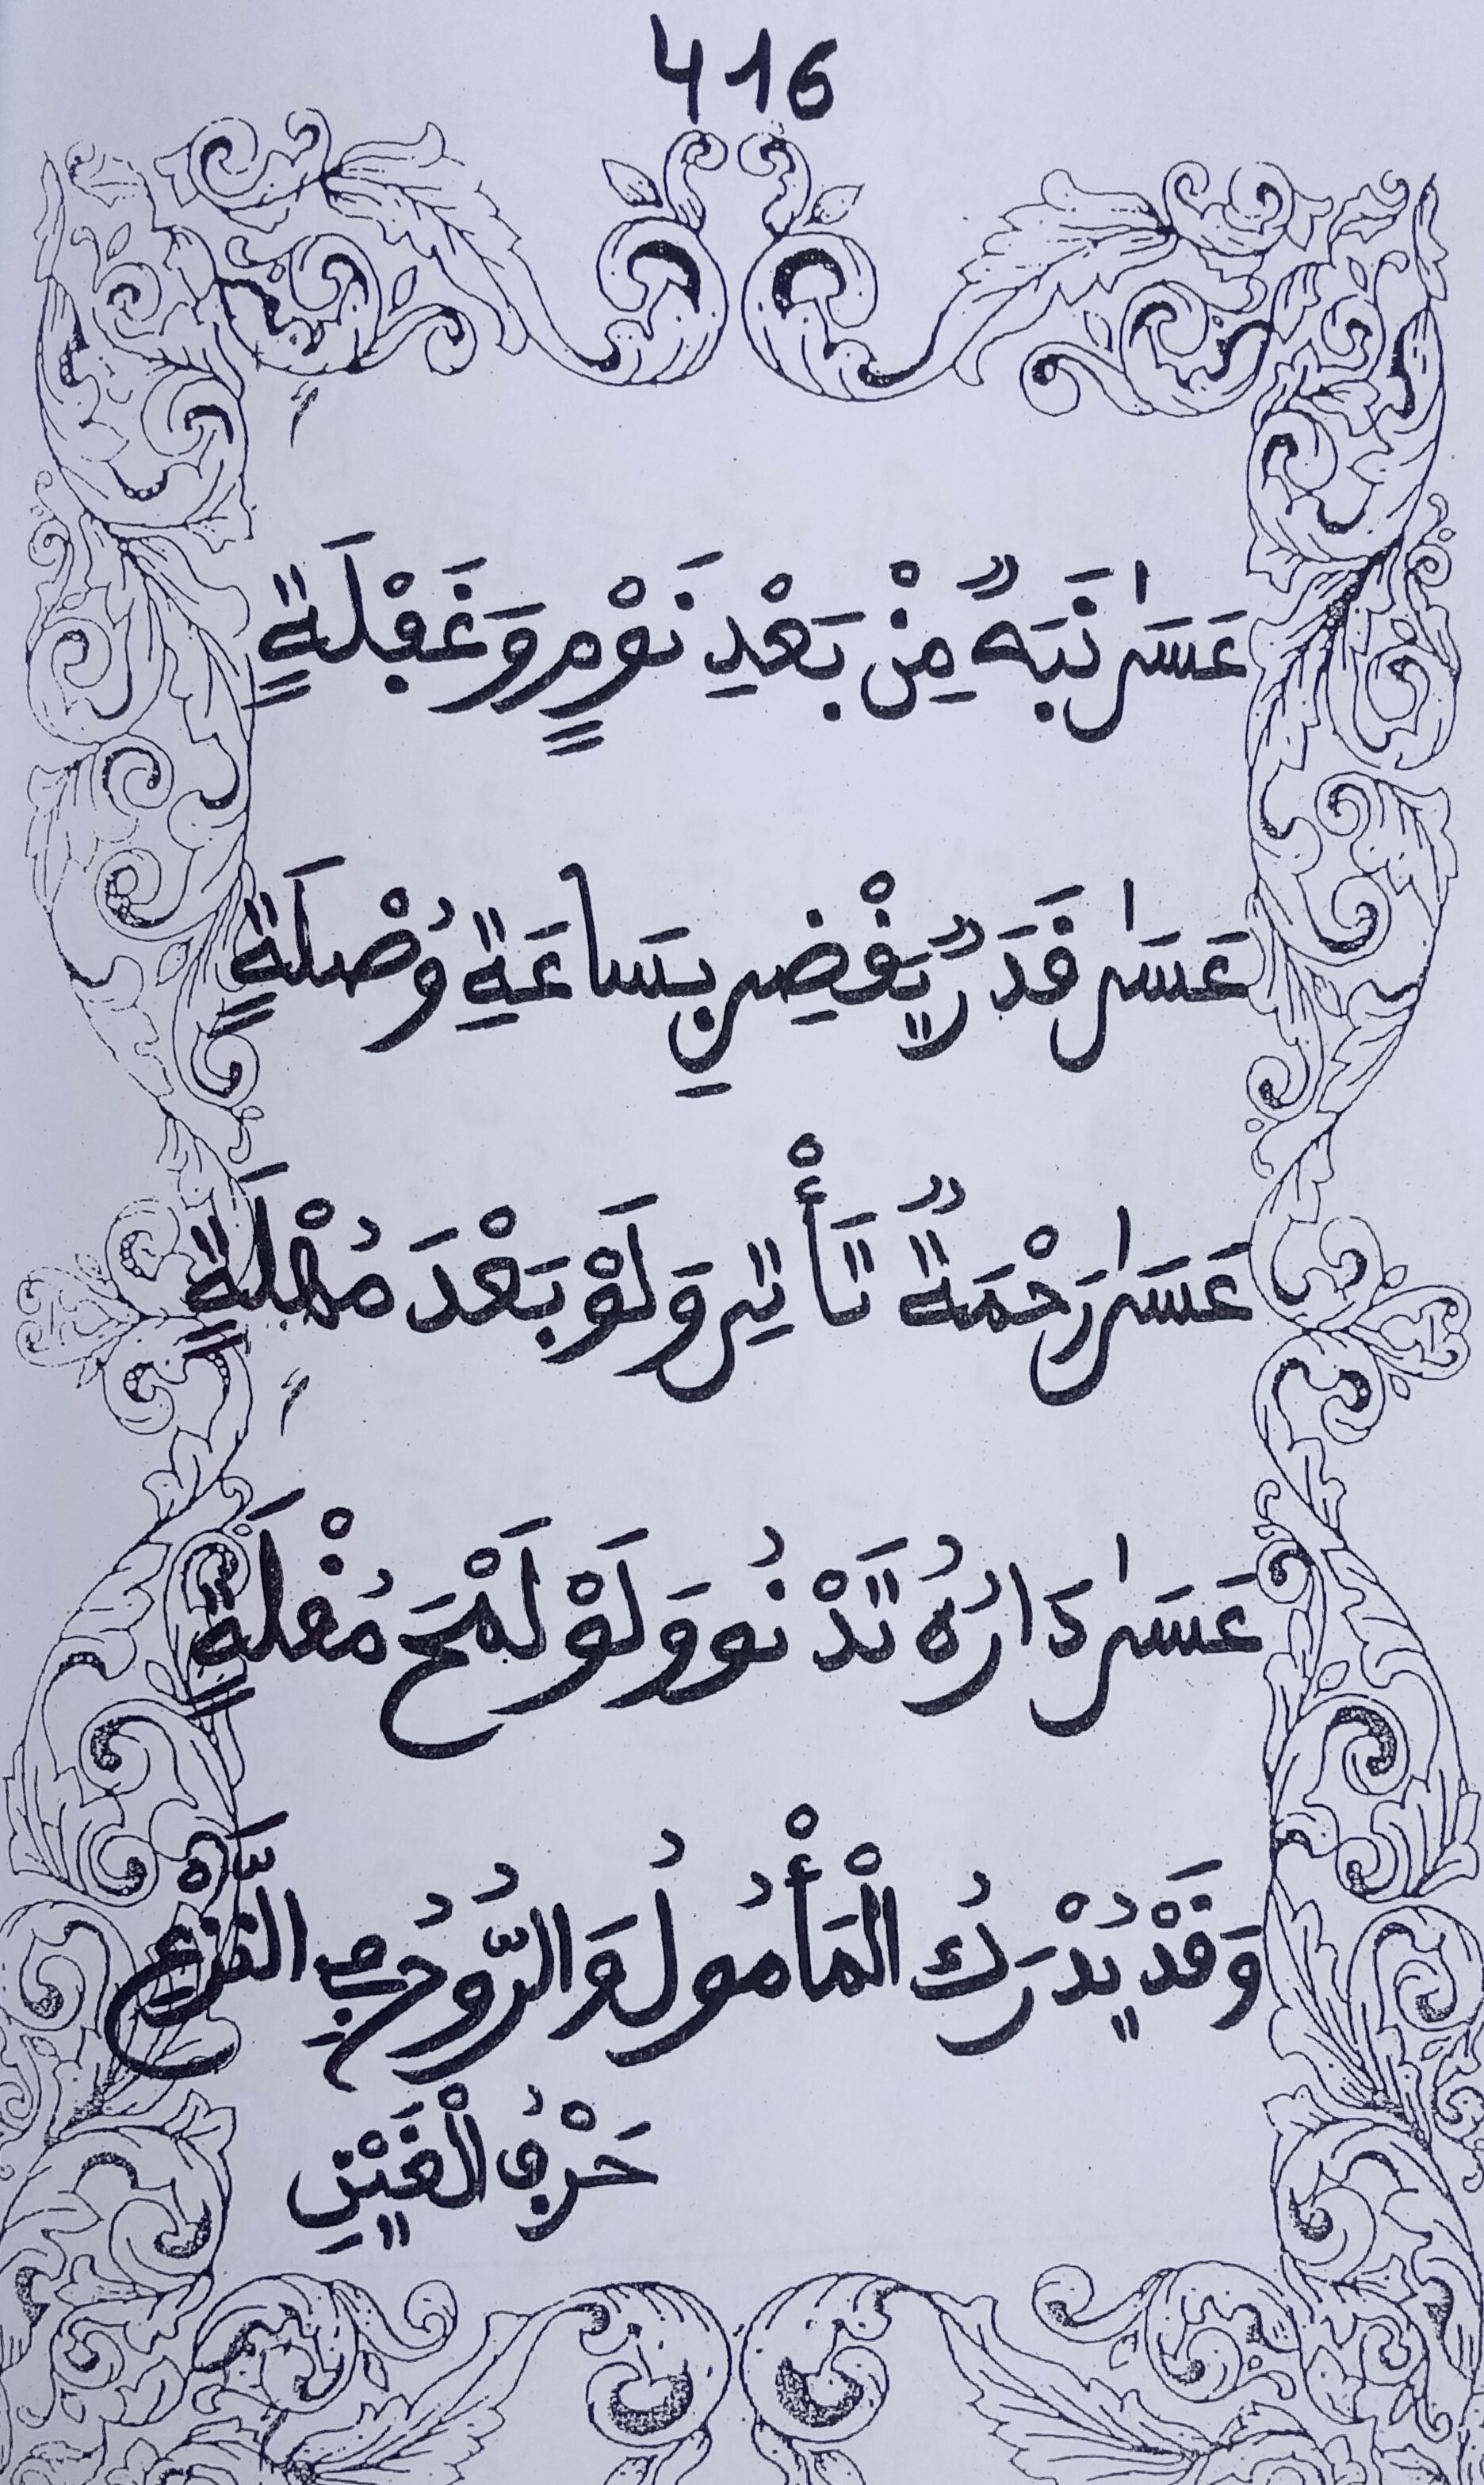 416
عَسَىٰ نَبَهٌ مِنْ بَعْدِ نَوْمٍ وَغَفْلَةٍ
عَسَىٰ قَدَرٌ يَقْضِي بِسَاعَةِ وُصْلَةٍ
عَسَىٰ رَحْمَةٌ تَأْتِي وَلَوْ بَعْدَ مُهْلَةٍ
عَسَىٰ دَارُهُ تَدْنُو وَلَوْ لَمْحَ مُقْلَةٍ
وَقَدْ يُدْرَكُ الْمَأْمُولُ وَالرُّوحُ فِي النَّزْعِ
حَرْفُ الْغَيْنِ